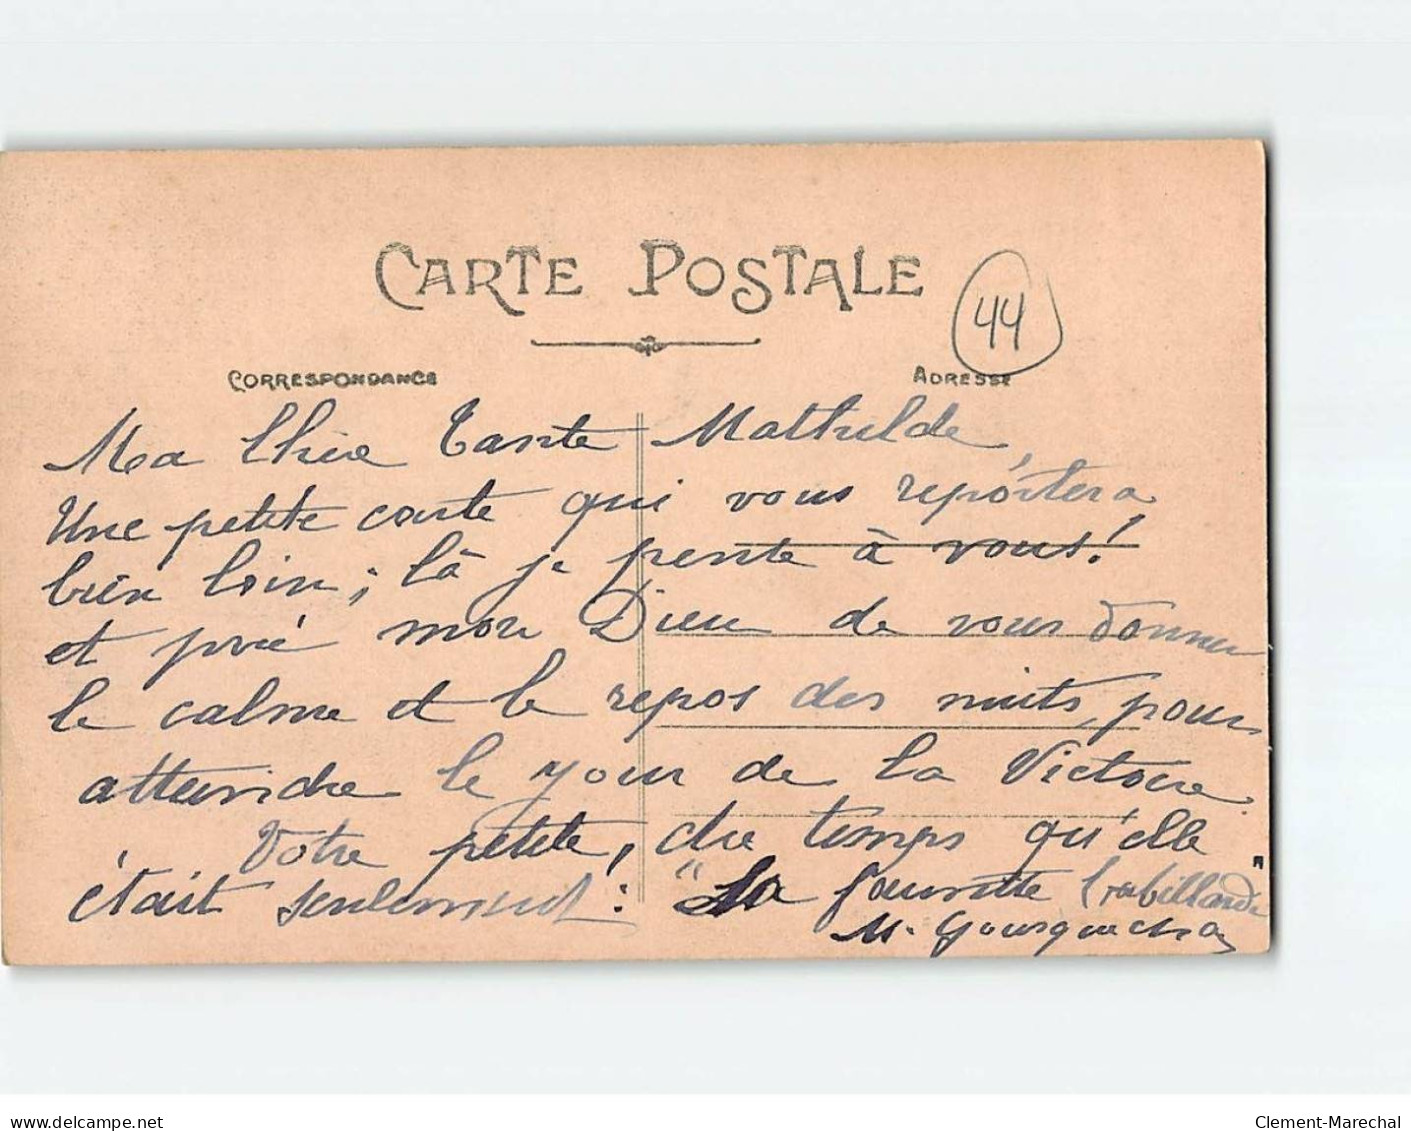 CARTE POSTALE
44
CORRESPONDANCE
ADRESSE
Ma Chère Tante Mathilde,
Une petite carte qui vous reportera
bien loin; là je pense à vous!
et prie mon Dieu de vous donner
le calme et le repos des nuits, pour
atteindre le jour de la Victoire.
Votre petite, du temps qu'elle
était seulement: "La fauvette babillarde"
M.
www.delcampe.net
Clement-Marechal